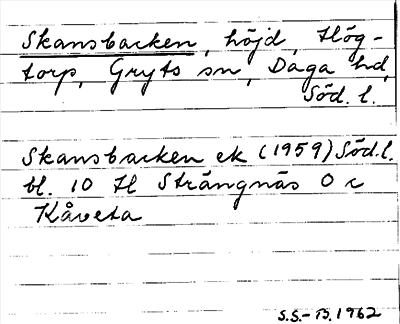 Skansbacken, höjd, Hög-
torp, Gryts sn, Daga hd,
Söd. l.
Skansbacken ek (1959) Söd.l.
bl. 10 H Strängnäs O c
Kåveta
S.S.-B. 1962